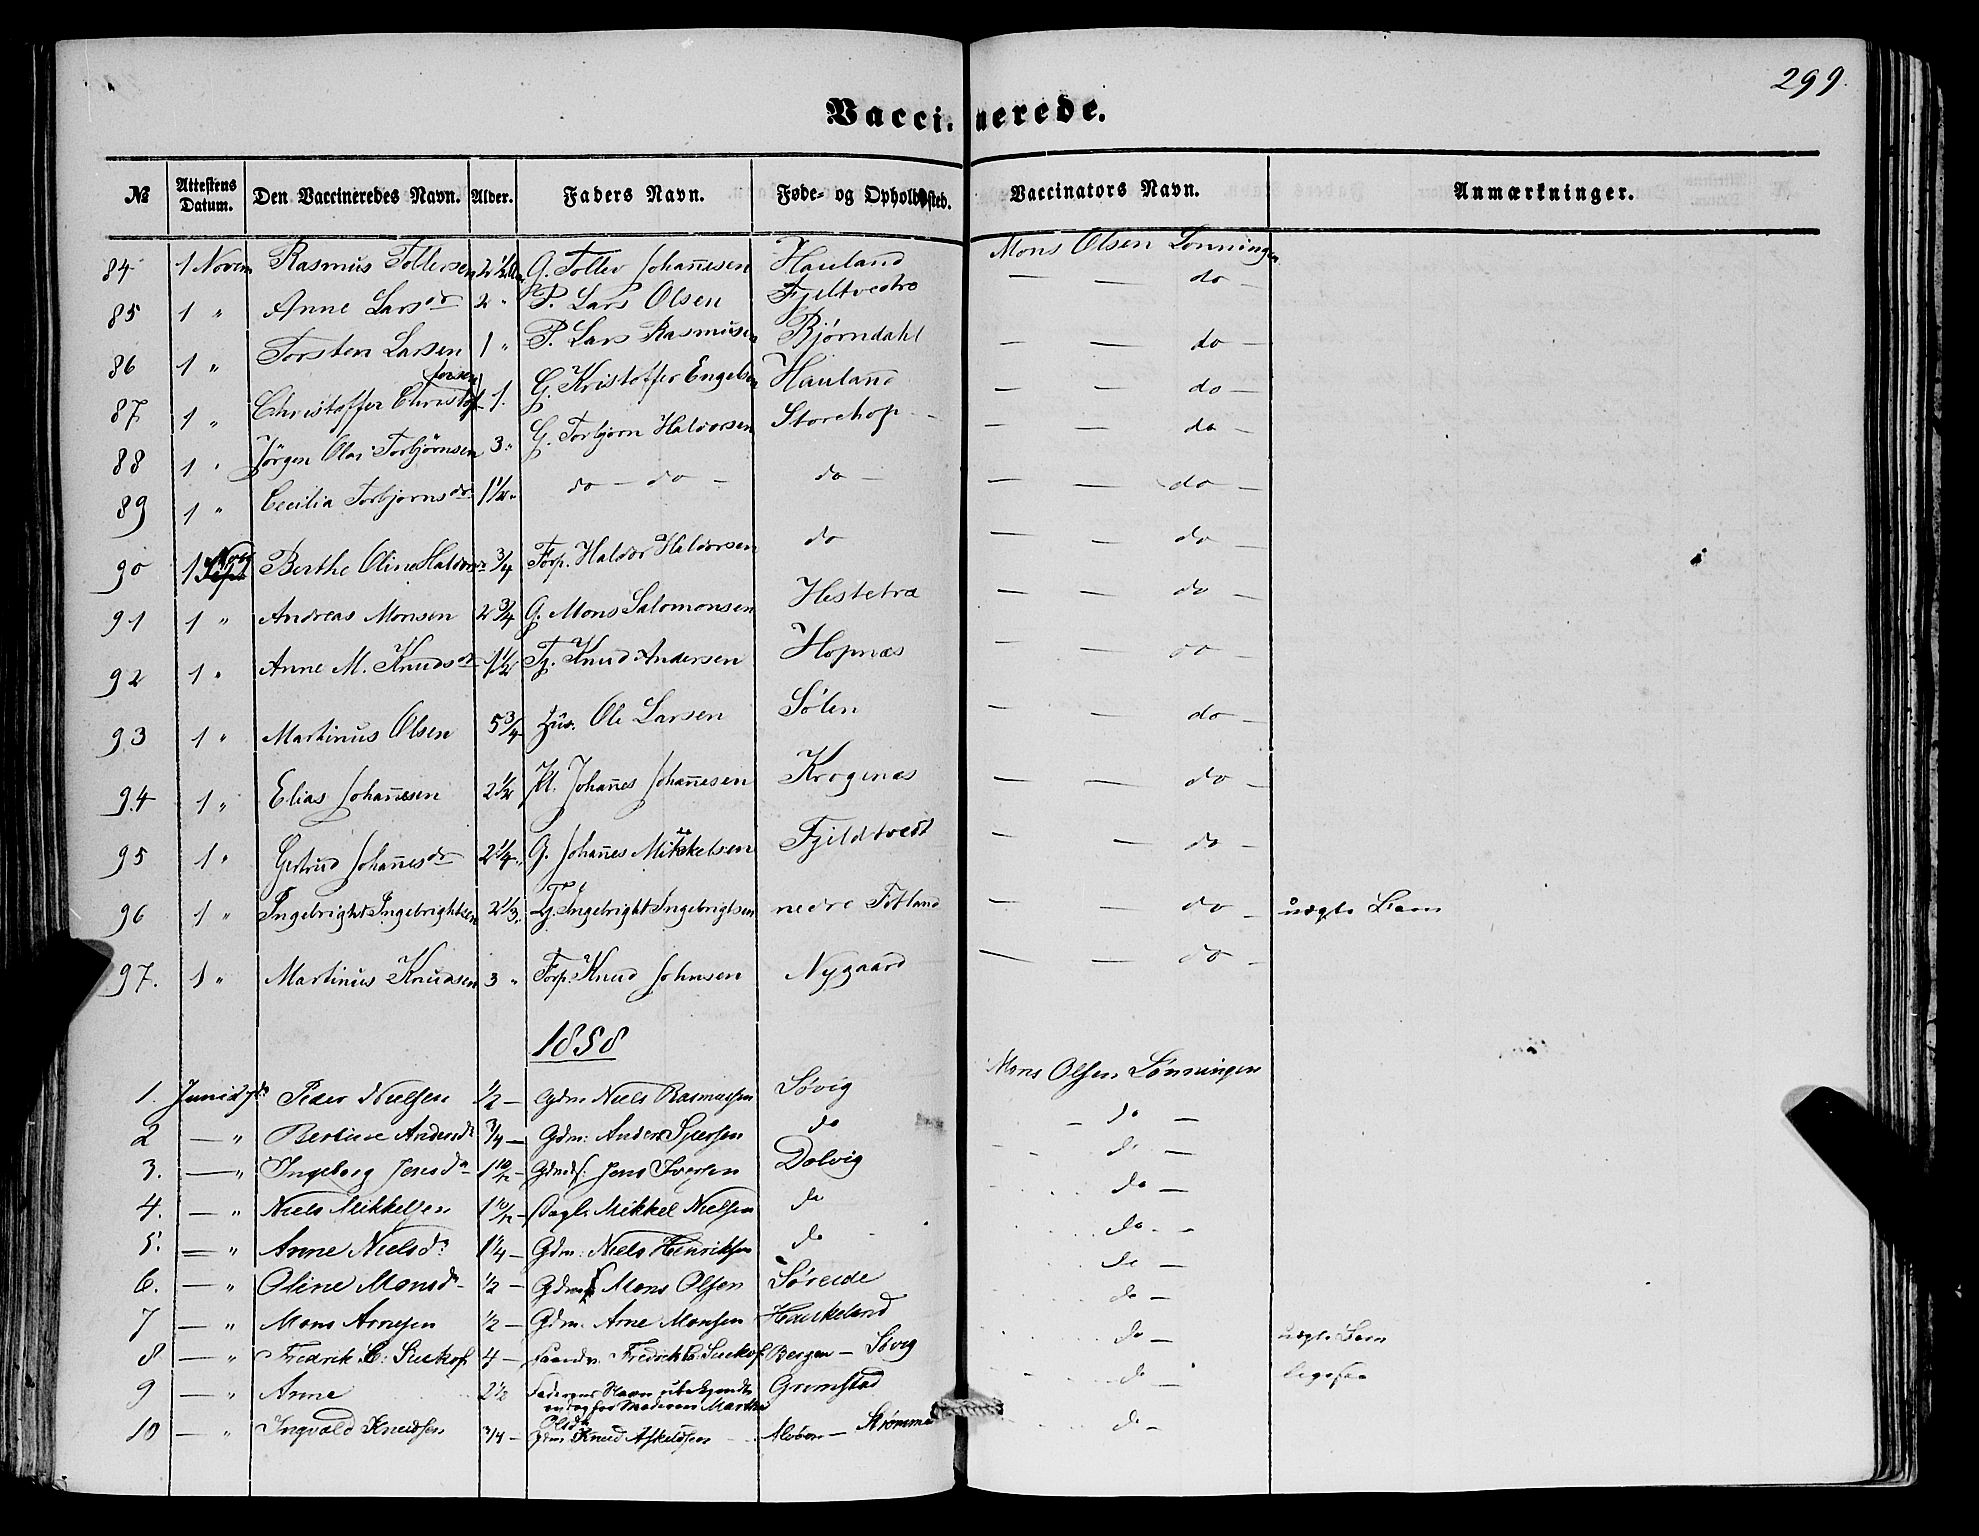 299.
Vaccinerede.
№ Attestens Datum. Den Vaccineredes Navn. Alder. Faders Navn. Føde- og Opholdssted. Vaccinators Navn. Anmærkninger.
84 1 Novem Rasmus Tollevsen 2½ G. Tollev Johannesen Hauland Mons Olsen Lønningen
85 1 " Anne Larsdr 2 " P. Lars Olsen Fjeltvedte — — do —
86 1 " Torsten Larsen 1 " P. Lars Rasmusen Bjørndahl — — do —
87 1 " Christoffer Christoffersen 1. G. Kristoffer Engelsen Hauland — — do —
88 1 " Jørgen Olai Torbjørnsen 3 " G. Torbjørn Haldorsen Storehop — — do —
89 1 " Cecilia Torbjørnsdr 1½ " do — do — do — — — do —
90 1 Nov Berthe Oline Haldorsdr ¾ Forp. Haldor Haldorsen do — — do —
91 1 " Andreas Monsen 2¾ G. Mons Salomonsen Hestetræ — — do —
92 1 " Anne M. Knudsdr 1½ Tj. Knud Andersen Hopnæs — — do —
93 1 " Martinus Olsen 5¾ Hus. Ole Larsen Sølen — — do —
94 1 " Elias Johannesen 2½ Pl. Johannes Johannesen Krogenæs — — do —
95 1 " Gertrud Johannesdr 2¼ " G. Johannes Mikkelsen Fjeldtvedt — — do —
96 1 " Ingebright Ingebrightsen 2⅓ " Tj. Ingebright Ingebrigtsen nedre Totland — — do — uægte Barn
97. 1 " Martinus Knudsen 3 " Forp. Knud Johnsen Nygaard — — do —
1858
1. Juni d 7de Peder Nielsen ½ — Gdm Niels Rasmussen Søvig Mons Olsen Lønningen
2 — " Bertine Andersdr ¾ — Gdm: Anders Iversen do — do —
3. — " Ingeborg Jensdr 1 10/12 — Gdmds. Jens Iversen Dolvig do —
4. — " Niels Mikkelsen 1 10/12 — Pagt. Mikkel Nielsen do do —
5. — " Anne Nielsdr 1¼ — Gdm: Niels Henriksen do do —
6. — " Oline Monsdr ½ — Gdm Mons Olsen Søreide do —
7 — " Mons Arnesen ½ — Gdm. Arne Monsen Haukeland do —
8 — " Fredrik C: Suckof 4 — Fredrik C. Suckof Bergen — Søvig do — uægte Barn
9 — " Anne 2½ Faderens Navn ubekjendt Grimstad do — ligesaa
opgav Moderen Marthe
Olsdr
10 — " Ingvald Knudsen ¾ — Gdm Knud Askeldsen Alvøen — Strømme do —